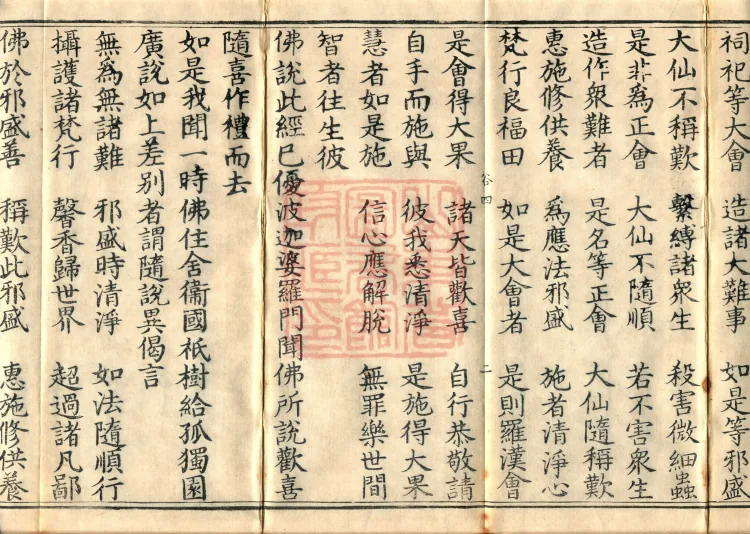 祠祀等大會　造諸大難事　如是等邪盛
大仙不稱歎　繫縛諸衆生　殺害微細蟲
是非為正會　大仙不隨順　若不害衆生
造作衆難者　是名等正會　大仙隨稱歎
惠施修供養　為應法邪盛　施者清淨心
梵行良福田　如是大會者　是則羅漢會
谷四　二
是會得大果　諸天皆歡喜　自行恭敬請
自手而施與　彼我悉清淨　是施得大果
慧者如是施　信心應解脫　無罪樂世間
智者往生彼
佛說此經已優波迦婆羅門聞佛所說歡喜
隨喜作禮而去
如是我聞一時佛住舍衞國祇樹給孤獨園
廣說如上差別者謂隨說異偈言
無為無諸難　邪盛時清淨　如法隨順行
攝護諸梵行　馨香歸世界　超過諸凡鄙
佛於邪盛善　稱歎此邪盛　惠施修供養